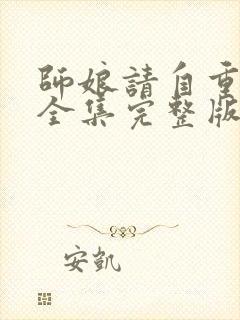 師娘請自重
全集完整版
安凯